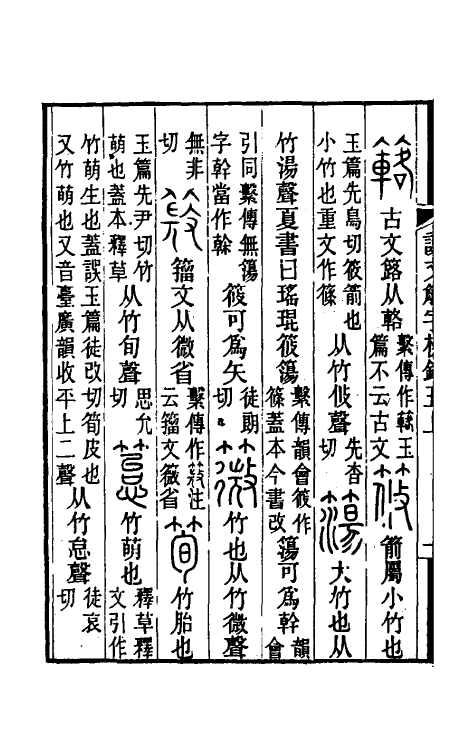 簵古文簬从輅繫傳作簵玉篇不云古文筱箭屬小竹也
玉篇先鳥切筱箭也小竹也重文作篠从竹攸聲先杳切簜大竹也从
竹湯聲夏書曰瑤琨筱簜繫傳韻會筱作篠蓋本今書改簜可爲幹韻會
引同繫傳無簜字幹當作榦筱可爲矢徒朗切䉠竹也从竹微聲
無非切籀文从微省繫傳作注云籀文䉠省筍竹胎也
玉篇先尹切竹萌也蓋本釋草从竹旬聲思允切䈚竹萌也釋草釋文引作
竹萌生也蓋誤玉篇徒改切筍皮也又竹萌也又音臺廣韻收平上二聲从竹怠聲徒哀切